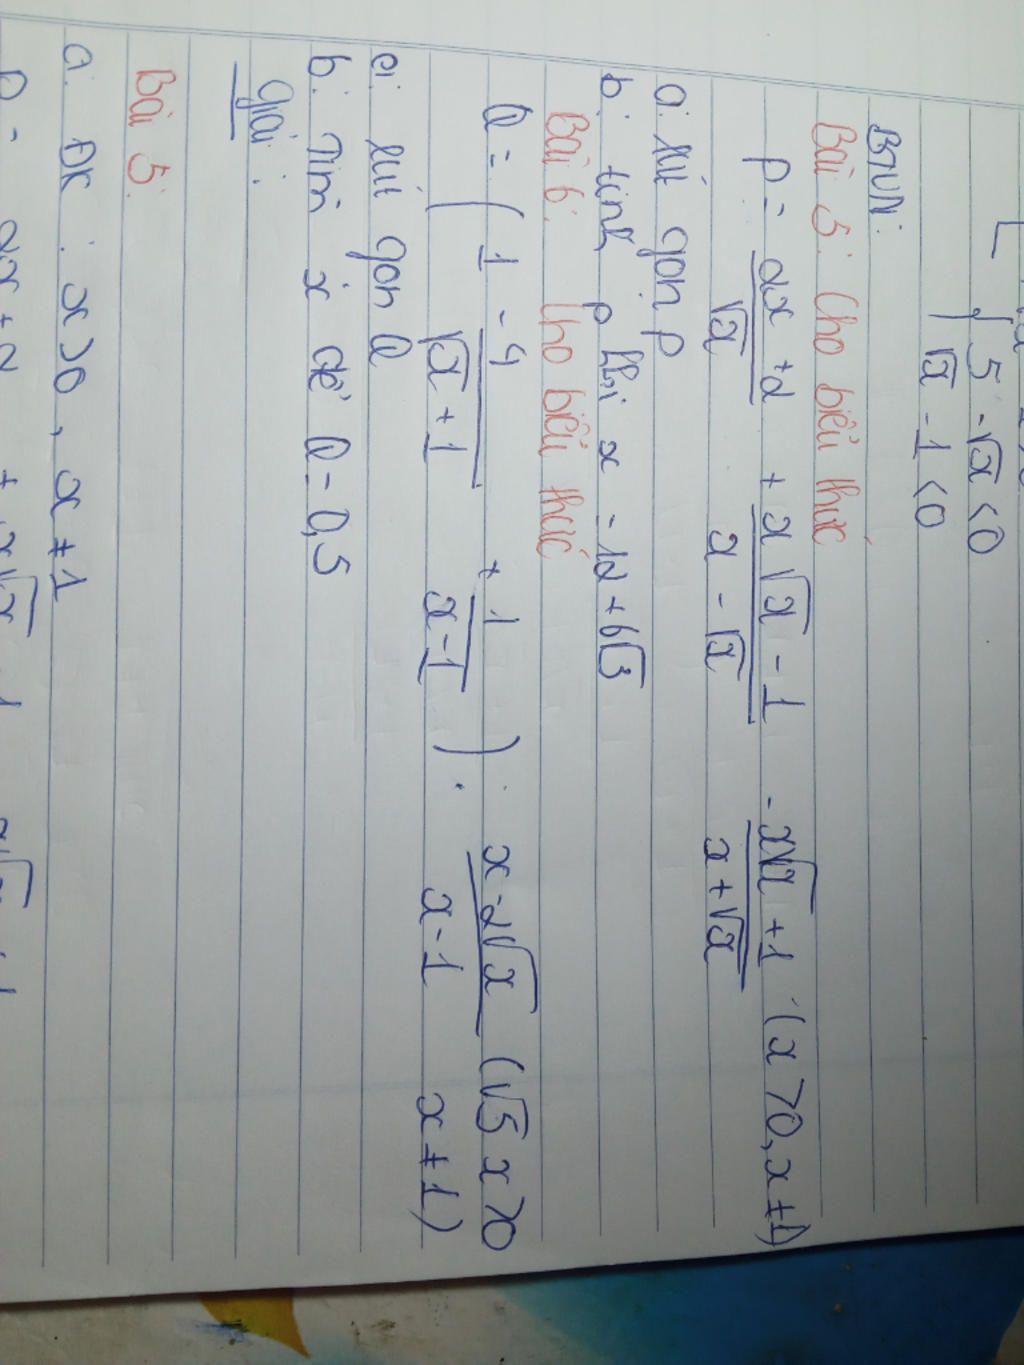 5 - √x < 0
√x - 1 < 0
BTVN:
Bài 5: Cho biểu thức
P = 2x + 2 / √x + x√x - 1 / x - √x - x√x + 1 / x + √x (x > 0, x ≠ 1)
a: Rút gọn P
b: tính P khi x = 12 + 6√3
Bài 6: Cho biểu thức
Q = ( 1 - 4 / √x + 1 + 1 / x - 1 ) . x - 2√x / x - 1 (√5 x > 0 x ≠ 1)
a: Rút gọn Q
b: Tìm x để Q = 0,5
Giải:
Bài 5:
a: ĐK: x > 0, x ≠ 1